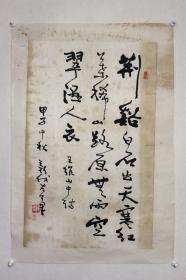 荆谿白石出天寒红
葉稀山路原無雨空
翠濕人衣
王維山中詩
甲子中秋